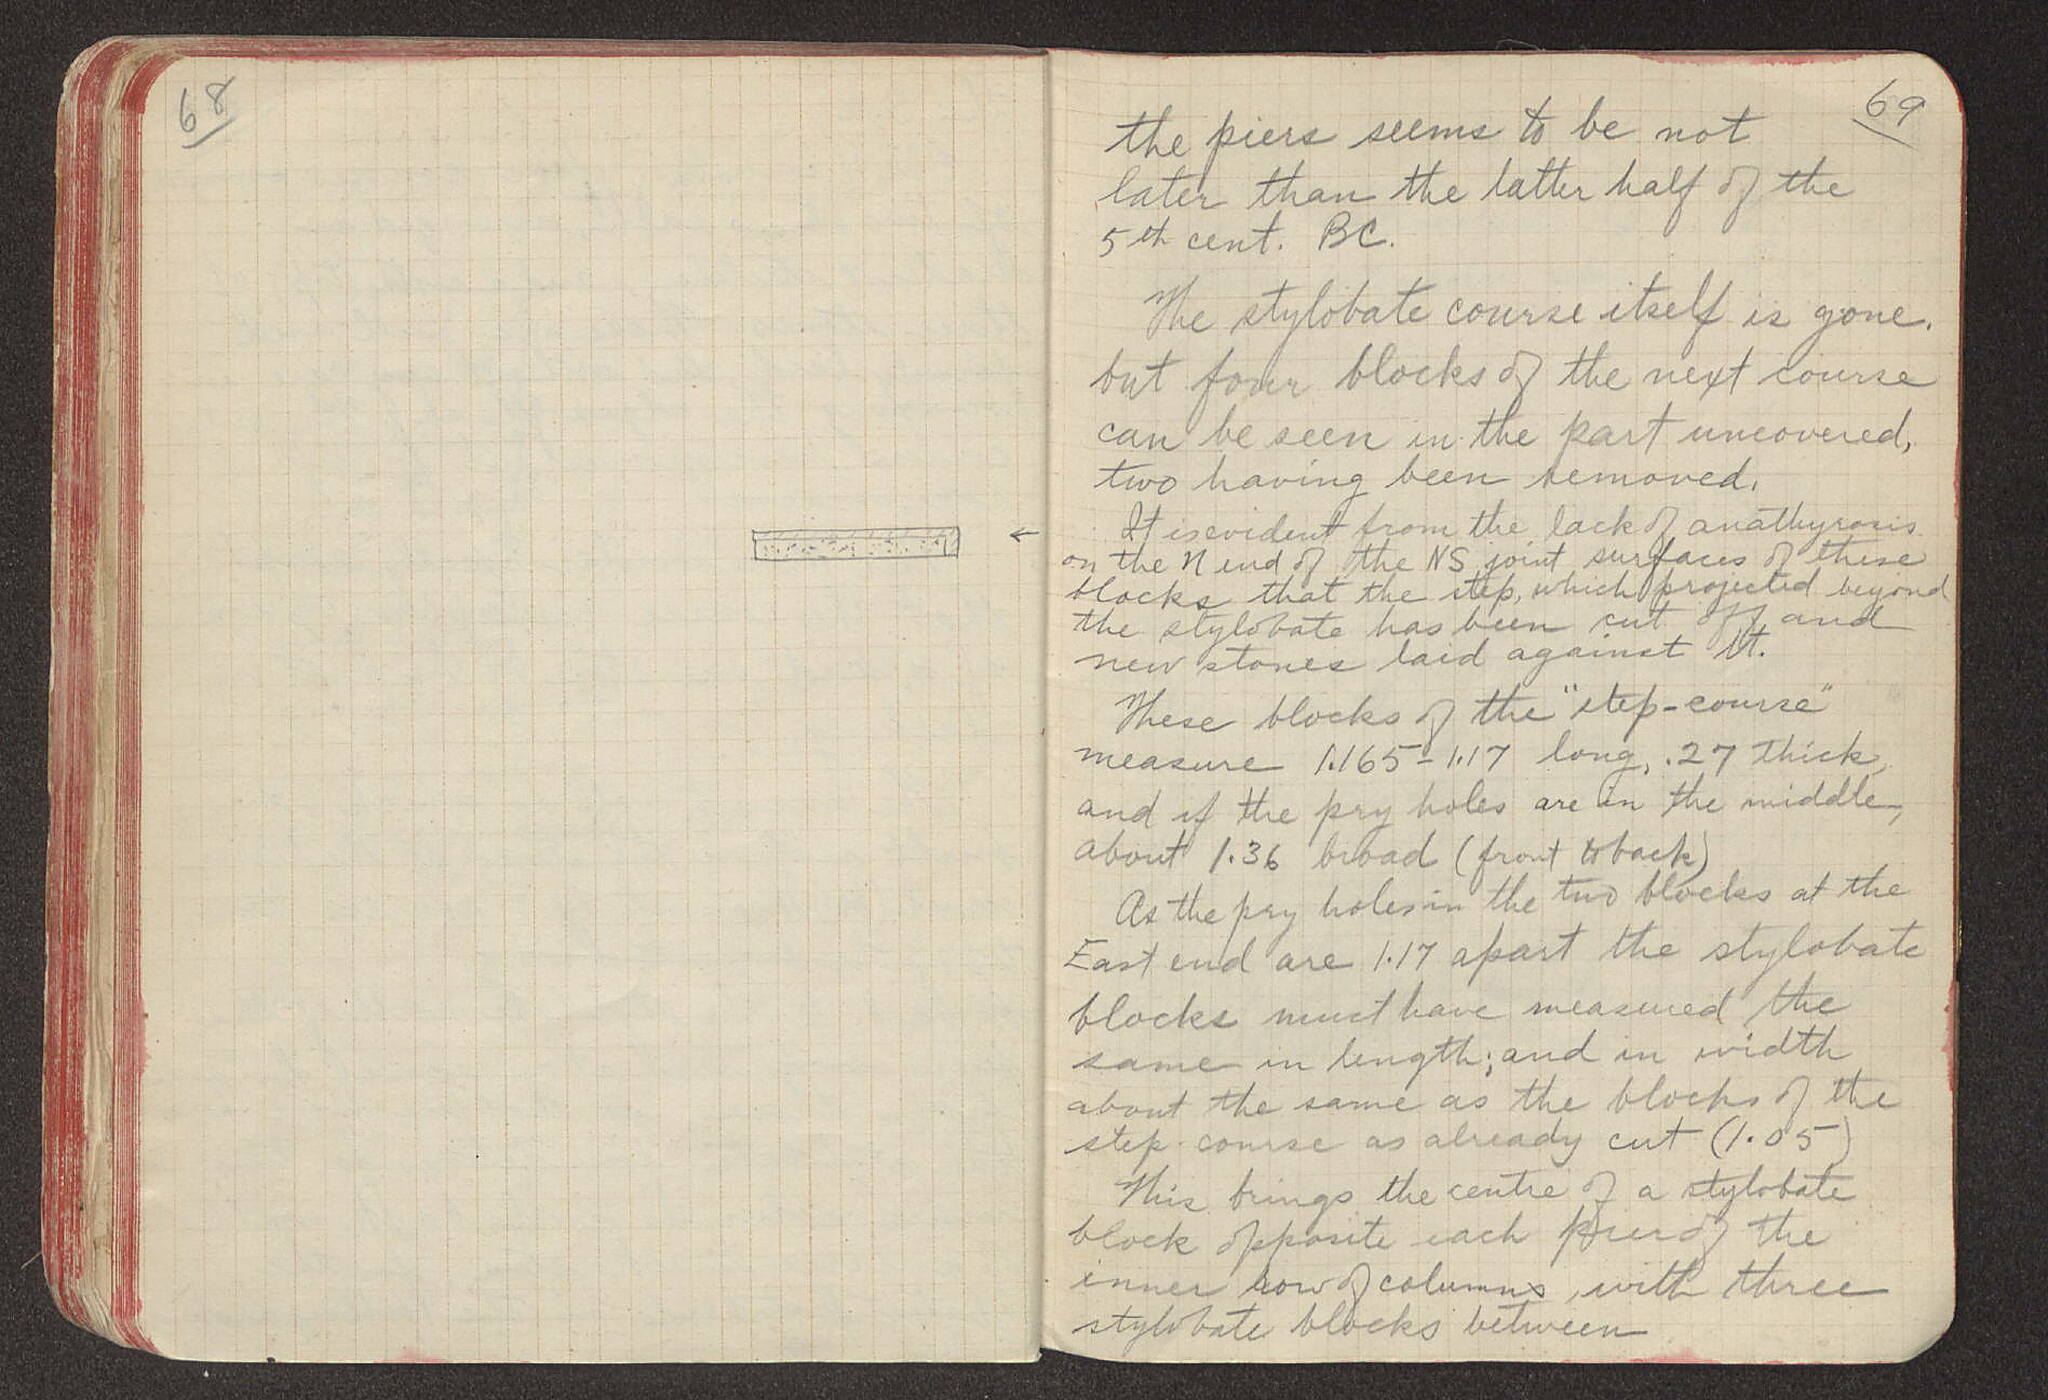 68
69
the piers seems to be not
later than the latter half of the
5th cent. BC.
The stylobate course itself is gone.
but four blocks of the next course
can be seen in the part uncovered,
two having been removed.
← It is evident from the lack of anathyrosis
on the N end of the NS joint surfaces of these
blocks that the step, which projected beyond
the stylobate has been cut off and
new stones laid against it.
These blocks of the "step-course"
measure 1.165-1.17 long, .27 thick,
and if the pry holes are in the middle,
about 1.36 broad (front to back)
As the pry holes in the two blocks at the
East end are 1.17 apart the stylobate
blocks must have measured the
same in length; and in width
about the same as the blocks of the
step course as already cut (1.05)
This brings the centre of a stylobate
block opposite each pier of the
inner row of columns, with three
stylobate blocks between